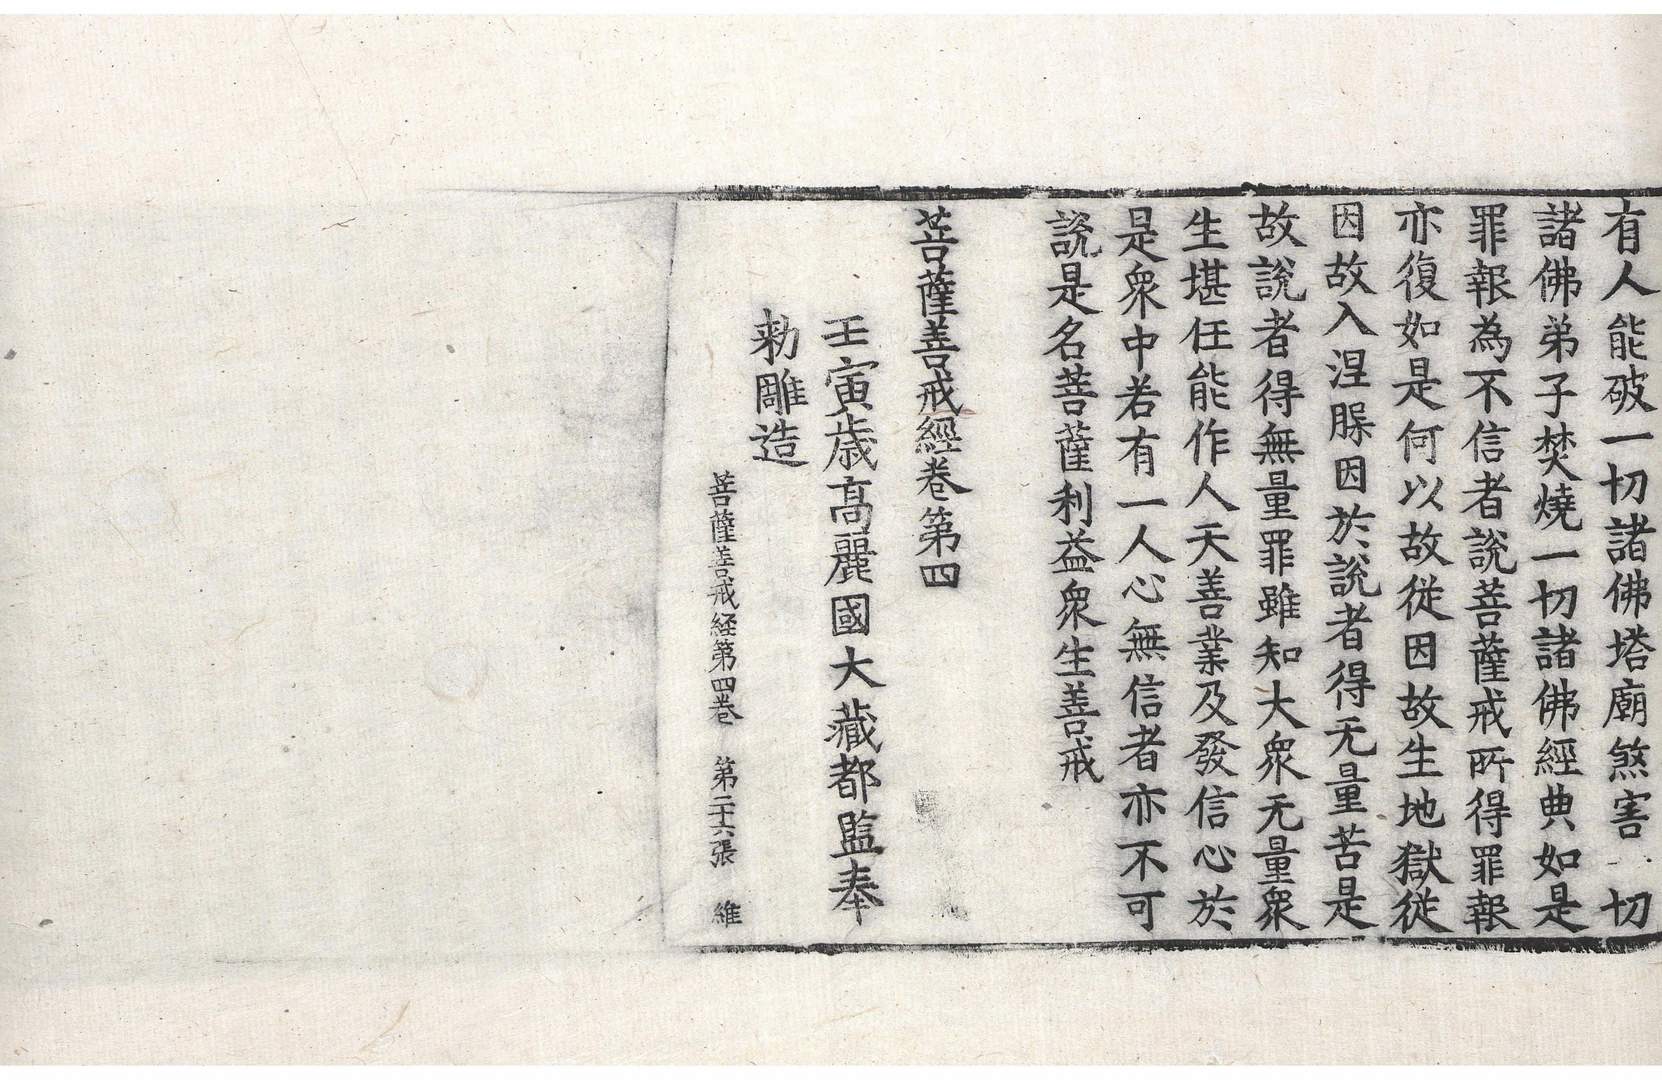 有人能破一切諸佛塔廟煞害 切
諸佛弟子焚燒一切諸佛經典如是
罪報為不信者說菩薩戒所得罪報
亦復如是何以故從因故生地獄從
因故入涅䏶因於說者得无量苦是
故說者得無量罪雖知大衆无量衆
生堪任能作人天善業及發信心於
是衆中若有一人心無信者亦不可
說是名菩薩利益衆生善戒
菩薩善戒經卷第四
壬寅歲高麗國大藏都監奉
勑雕造
菩薩善戒経第四卷 第二十六張 維